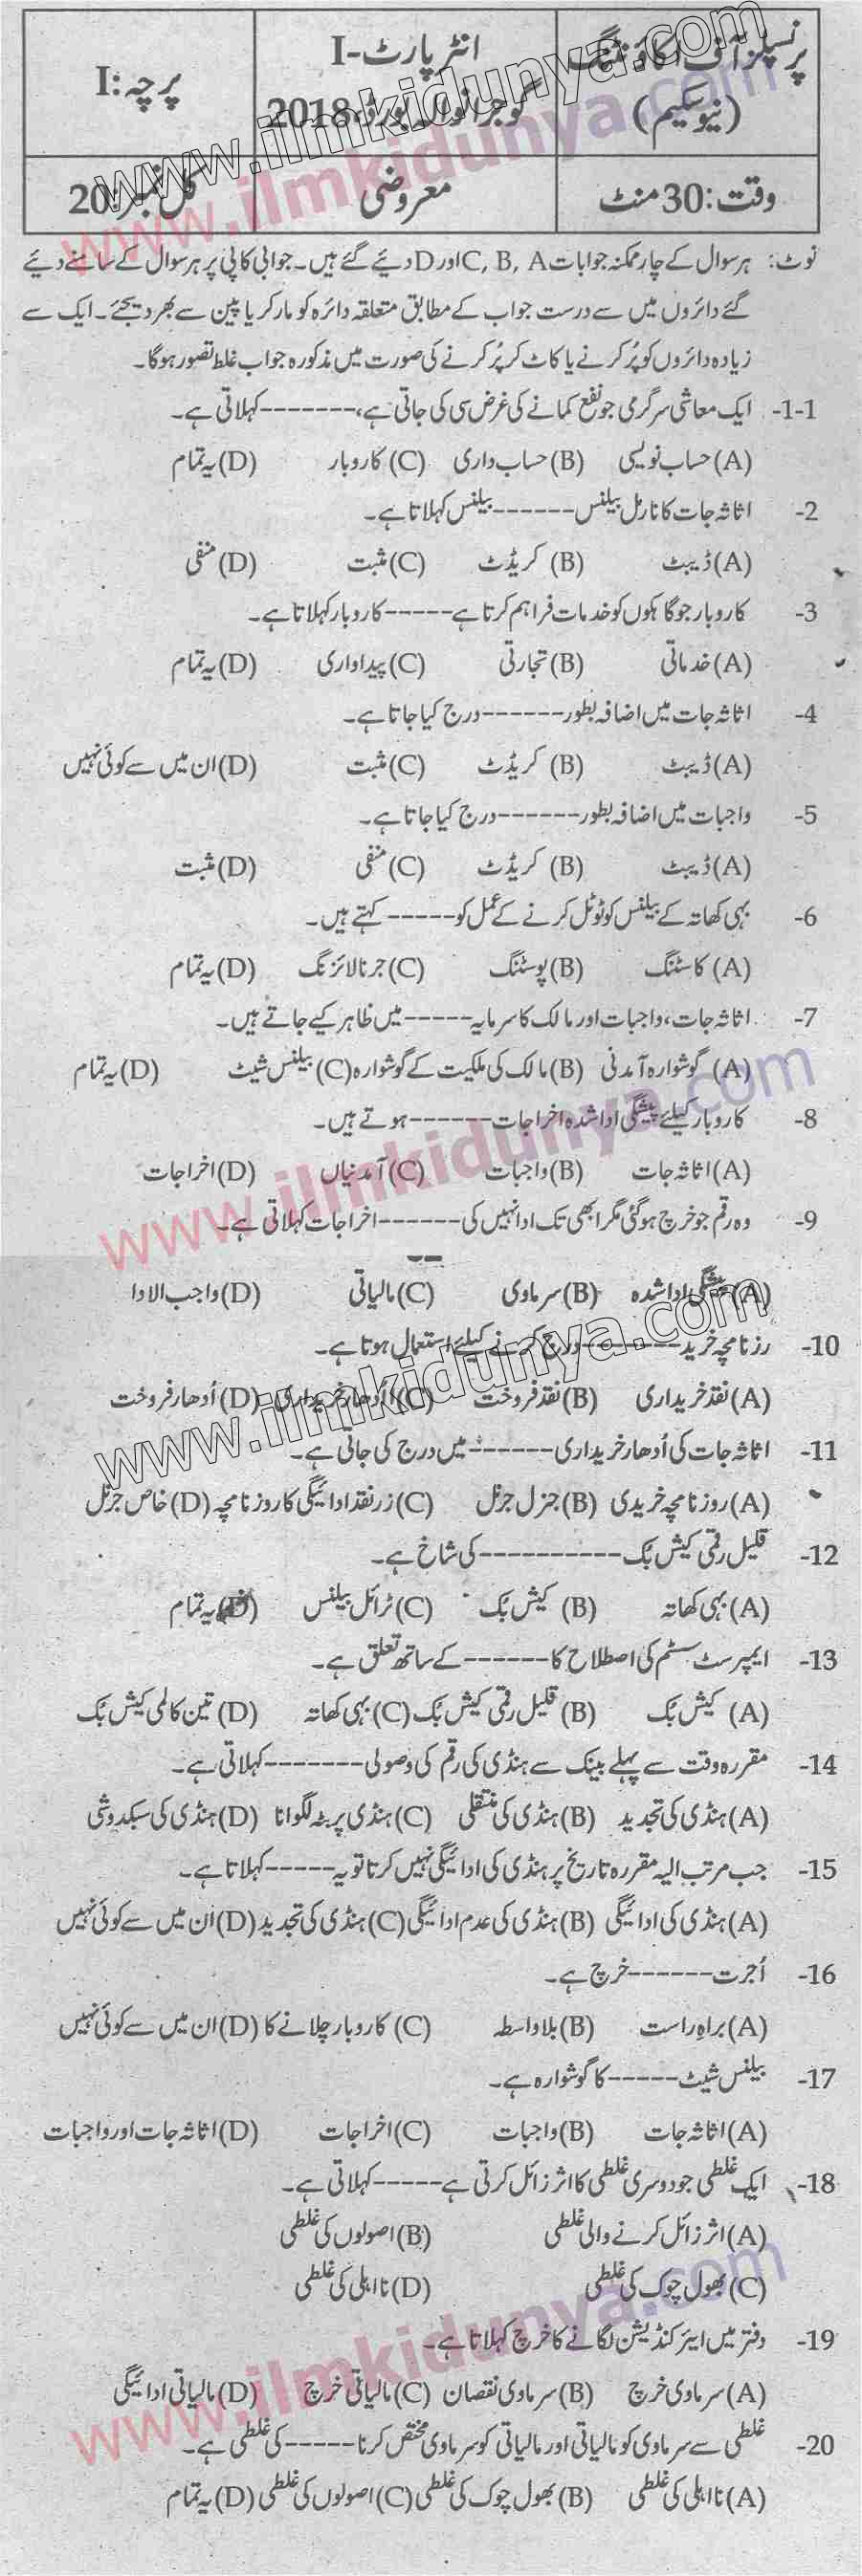 پرنسپلز آف اکاؤنٹنگ (نیو سکیم)
انٹر پارٹ-I گوجرانوالہ بورڈ، 2018
پرچہ: I
وقت: 30 منٹ
معروضی
کل نمبر: 20
نوٹ: ہر سوال کے چار ممکنہ جوابات C, B, A اور D دیئے گئے ہیں۔ جوابی کاپی پر ہر سوال کے سامنے دیئے
گئے دائروں میں سے درست جواب کے مطابق متعلقہ دائرہ کو مارکر یا پین سے بھر دیجئے۔ ایک سے
زیادہ دائروں کو پُر کرنے یا کاٹ کر پُر کرنے کی صورت میں مذکورہ جواب غلط تصور ہوگا۔
1-1- ایک معاشی سرگرمی جو نفع کمانے کی غرض سی کی جاتی ہے، ------- کہلاتی ہے۔
(A) حساب نویسی (B) حساب داری (C) کاروبار (D) یہ تمام
2- اثاثہ جات کا نارمل بیلنس ------ بیلنس کہلاتا ہے۔
(A) ڈیبٹ (B) کریڈٹ (C) مثبت (D) منفی
3- کاروبار جو گاہکوں کو خدمات فراہم کرتا ہے ----- کاروبار کہلاتا ہے۔
(A) خدماتی (B) تجارتی (C) پیداواری (D) یہ تمام
4- اثاثہ جات میں اضافہ بطور ------ درج کیا جاتا ہے۔
(A) ڈیبٹ (B) کریڈٹ (C) مثبت (D) ان میں سے کوئی نہیں
5- واجبات میں اضافہ بطور ------ درج کیا جاتا ہے۔
(A) ڈیبٹ (B) کریڈٹ (C) منفی (D) مثبت
6- بہی کھاتہ کے بیلنس کو ٹوٹل کرنے کے عمل کو ----- کہتے ہیں۔
(A) کاسٹنگ (B) پوسٹنگ (C) جرنالائزنگ (D) یہ تمام
7- اثاثہ جات، واجبات اور مالک کا سرمایہ ----- میں ظاہر کیے جاتے ہیں۔
(A) گوشوارہ آمدنی (B) مالک کی ملکیت کے گوشوارہ (C) بیلنس شیٹ (D) یہ تمام
8- کاروبار کیلئے پیشگی ادا شدہ اخراجات ------ ہوتے ہیں۔
(A) اثاثہ جات (B) واجبات (C) آمدنیاں (D) اخراجات
9- وہ رقم جو خرچ ہو گئی مگر ابھی تک ادا نہیں کی ------ اخراجات کہلاتی ہے۔
(A) پیشگی ادا شدہ (B) سرماوی (C) مالیاتی (D) واجب الادا
10- رزنامچہ خرید ------- درج کرنے کیلئے استعمال ہوتا ہے۔
(A) نقد خریداری (B) نقد فروخت (C) اُدھار خریداری (D) اُدھار فروخت
11- اثاثہ جات کی اُدھار خریداری ------ میں درج کی جاتی ہے۔
(A) روزنامچہ خریدی (B) جنرل جرنل (C) زرنقد ادائیگی کا روزنامچہ (D) خاص جرنل
12- قلیل رقمی کیش بُک ---------- کی شاخ ہے۔
(A) بہی کھاتہ (B) کیش بُک (C) ٹرائل بیلنس (D) یہ تمام
13- ایمپرسٹ سسٹم کی اصطلاح کا ------ کے ساتھ تعلق ہے۔
(A) کیش بُک (B) قلیل رقمی کیش بُک (C) بہی کھاتہ (D) تین کالمی کیش بُک
14- مقررہ وقت سے پہلے بینک سے ہنڈی کی رقم کی وصولی ------- کہلاتی ہے۔
(A) ہنڈی کی تجدید (B) ہنڈی کی منتقلی (C) ہنڈی پر بٹہ لگوانا (D) ہنڈی کی سبکدوشی
15- جب مرتب الیہ مقررہ تاریخ پر ہنڈی کی ادائیگی نہیں کرتا تو یہ ----- کہلاتا ہے۔
(A) ہنڈی کی ادائیگی (B) ہنڈی کی عدم ادائیگی (C) ہنڈی کی تجدید (D) ان میں سے کوئی نہیں
16- اُجرت ------ خرچ ہے۔
(A) براہِ راست (B) بلاواسطہ (C) کاروبار چلانے کا (D) ان میں سے کوئی نہیں
17- بیلنس شیٹ ----- کا گوشوارہ ہے۔
(A) اثاثہ جات (B) واجبات (C) اخراجات (D) اثاثہ جات اور واجبات
18- ایک غلطی جو دوسری غلطی کا اثر زائل کرتی ہے ----- کہلاتی ہے۔
(A) اثر زائل کرنے والی غلطی (B) اصولوں کی غلطی
(C) بھول چوک کی غلطی (D) نااہلی کی غلطی
19- دفتر میں ایئر کنڈیشن لگانے کا خرچ کہلاتا ہے۔
(A) سرماوی خرچ (B) سرماوی نقصان (C) مالیاتی خرچ (D) مالیاتی ادائیگی
20- غلطی سے سرماوی کو مالیاتی اور مالیاتی کو سرماوی مختص کرنا ----- کی غلطی ہے۔
(A) نااہلی کی غلطی (B) بھول چوک کی غلطی (C) اصولوں کی غلطی (D) یہ تمام
www.ilmkidunya.com
www.ilmkidunya.com
www.ilmkidunya.com
www.ilmkidunya.com
www.ilmkidunya.com